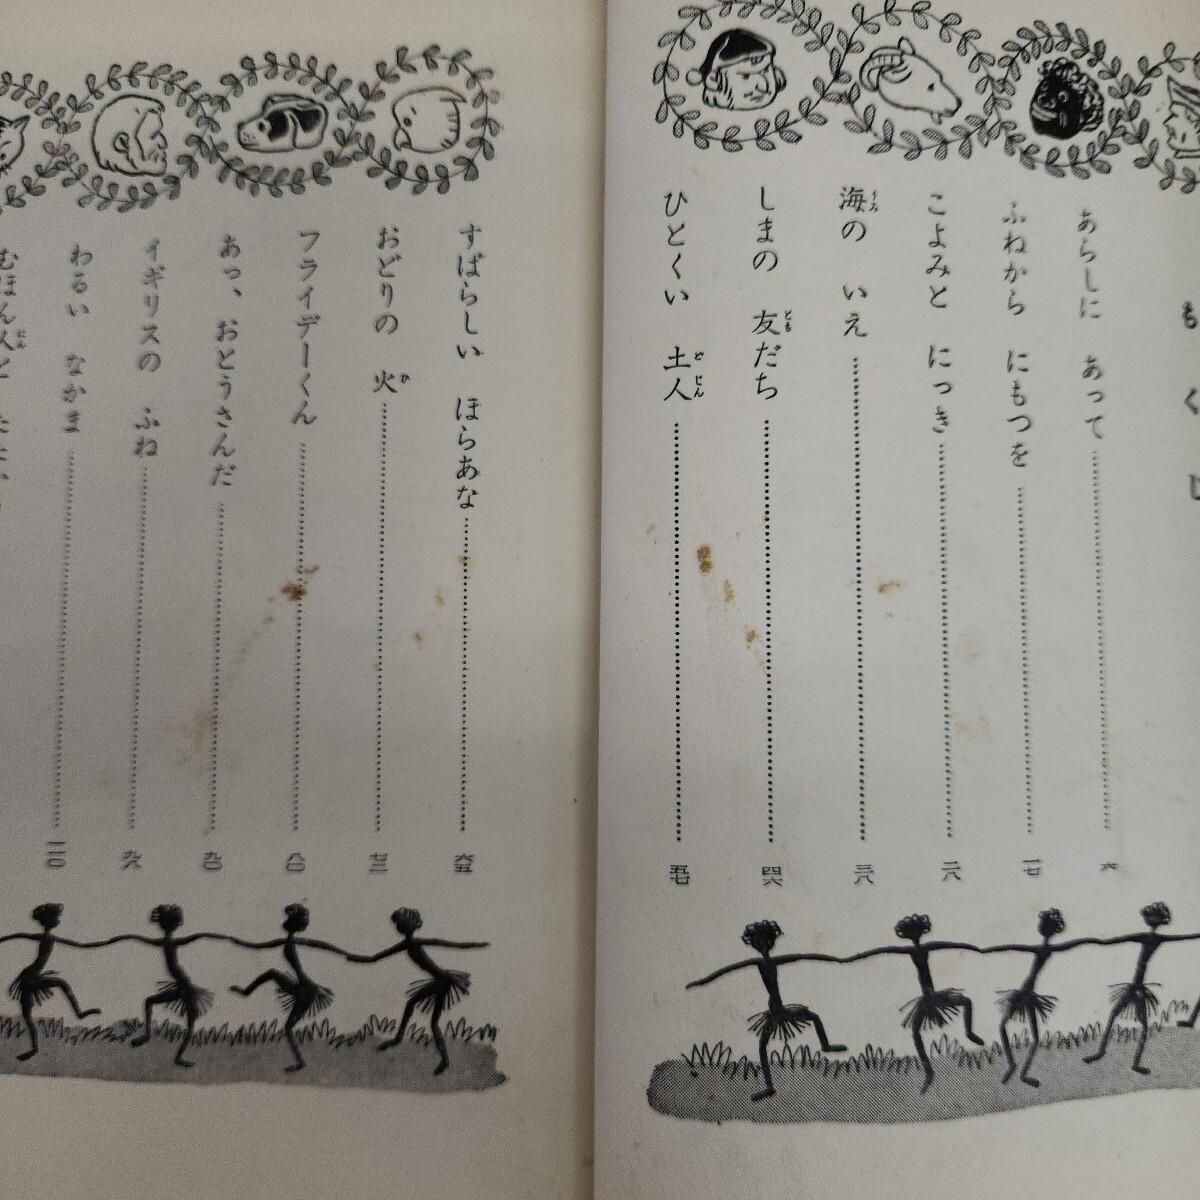 もくじ
あらしに あって 六
ふねから にもつを 一七
こよみと にっき 二八
海の いえ 三八
しまの 友だち 四六
ひとくい 土人 五七
すばらしい ほらあな 六五
おどりの 火 七三
フライデーくん 八〇
あっ、おとうさんだ 九〇
イギリスの ふね 九六
わるい なかま 一一〇
むほん人と